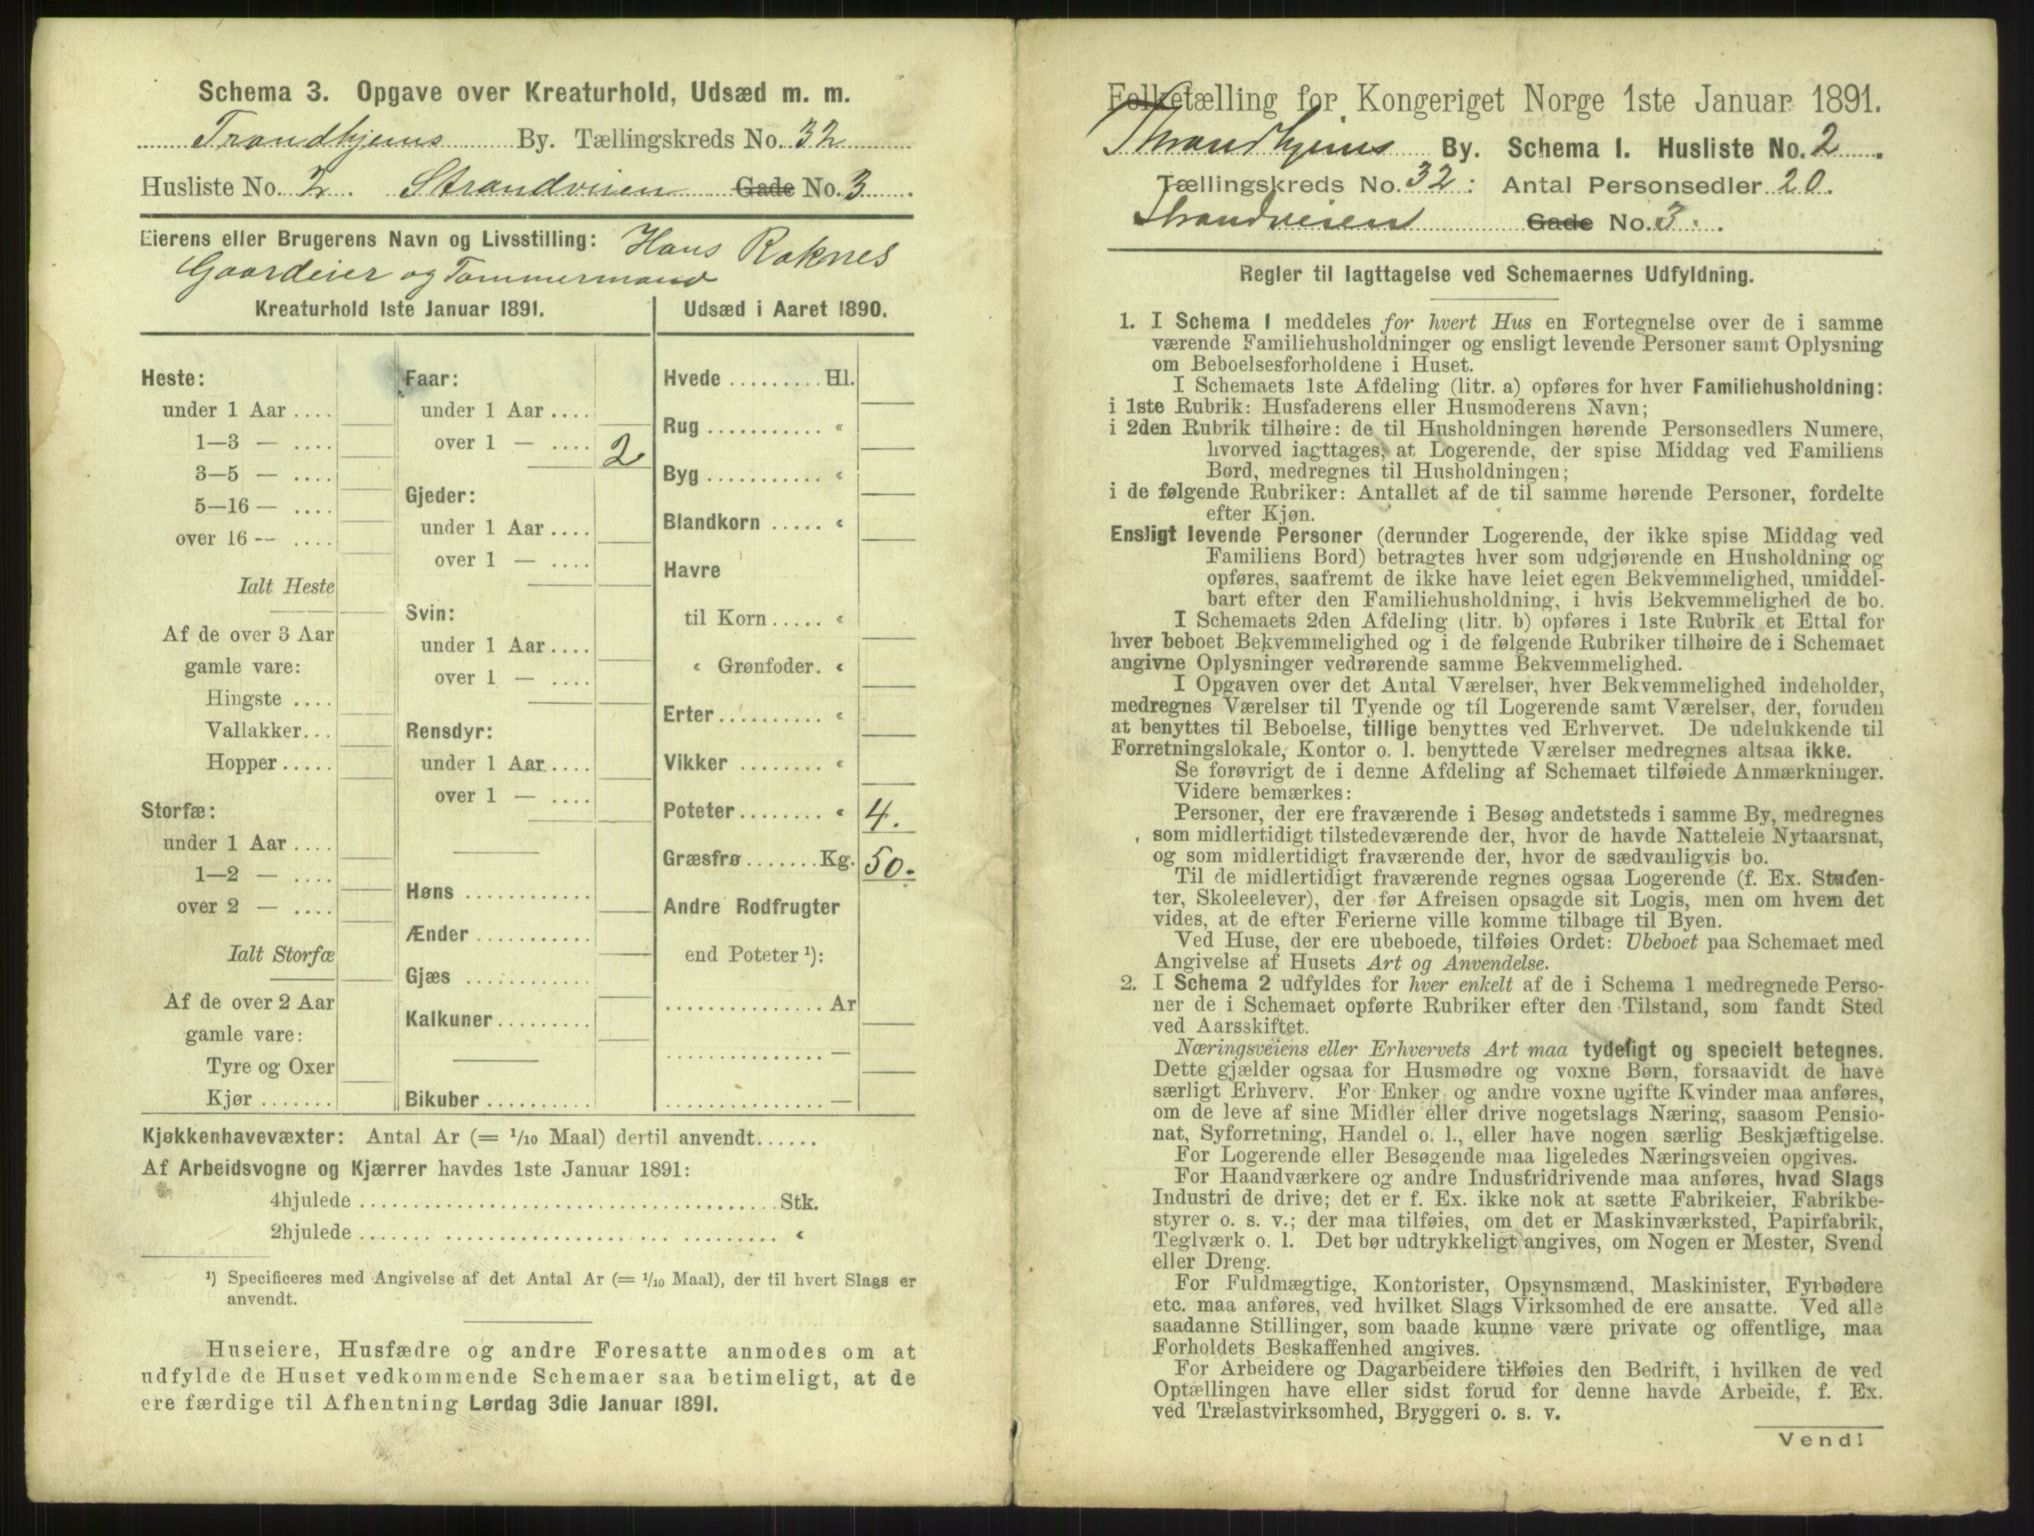 Schema 3. Opgave over Kreaturhold, Udsæd m. m.
Trondhjems By. Tællingskreds No. 32
Husliste No. 2. Strandveien Gade No. 3.
Eierens eller Brugerens Navn og Livsstilling: Hans Raknes
Gaardeier og Tømmermand
Kreaturhold 1ste Januar 1891.
Heste:
under 1 Aar ....
1—3 — ....
3—5 — ....
5—16 — ....
over 16 — ....
Ialt Heste
Af de over 3 Aar
gamle vare:
Hingste ....
Vallakker...
Hopper.....
Storfæ:
under 1 Aar ....
1—2 — ....
over 2 — ....
Ialt Storfæ
Af de over 2 Aar
gamle vare:
Tyre og Oxer
Kjør .......
Faar:
under 1 Aar ....
over 1 — .... 2
Gjeder:
under 1 Aar....
over 1 — ....
Svin:
under 1 Aar....
over 1 — ....
Rensdyr:
under 1 Aar....
over 1 — ....
Høns ............
Ænder ...........
Gjæs ............
Kalkuner.........
Bikuber ..........
Udsæd i Aaret 1890.
Hvede .........Hl.
Rug ........... «
Byg ........... «
Blandkorn ..... «
Havre
til Korn..... «
« Grønfoder. «
Erter.......... «
Vikker ........ «
Poteter........ « 4.
Græsfrø.......Kg. 50.
Andre Rodfrugter
end Poteter ¹):
...............Ar
...............—
...............—
Kjøkkenhavevæxter: Antal Ar (= 1/10 Maal) dertil anvendt......
Af Arbeidsvogne og Kjærrer havdes 1ste Januar 1891:
4hjulede ........................................Stk.
2hjulede ........................................ «
¹) Specificeres med Angivelse af det Antal Ar (= 1/10 Maal), der til hvert Slags er
anvendt.
Huseiere, Husfædre og andre Foresatte anmodes om at
udfylde de Huset vedkommende Schemaer saa betimeligt, at de
ere færdige til Afhentning Lørdag 3die Januar 1891.
Folketælling for Kongeriget Norge 1ste Januar 1891.
Throndhjems By. Schema 1. Husliste No. 2.
Tællingskreds No. 32: Antal Personsedler 20.
Strandveien Gade No. 3.
Regler til Iagttagelse ved Schemaernes Udfyldning.
1. I Schema 1 meddeles for hvert Hus en Fortegnelse over de i samme
værende Familiehusholdninger og ensligt levende Personer samt Oplysning
om Beboelsesforholdene i Huset.
I Schemaets 1ste Afdeling (litr. a) opføres for hver Familiehusholdning:
i 1ste Rubrik: Husfaderens eller Husmoderens Navn;
i 2den Rubrik tilhøire: de til Husholdningen hørende Personsedlers Numere,
hvorved iagttages, at Logerende, der spise Middag ved Familiens
Bord, medregnes til Husholdningen;
i de følgende Rubriker: Antallet af de til samme hørende Personer, fordelte
efter Kjøn.
Ensligt levende Personer (derunder Logerende, der ikke spise Middag ved
Familiens Bord) betragtes hver som udgjørende en Husholdning og
opføres, saafremt de ikke have leiet egen Bekvemmelighed, umiddel-
bart efter den Familiehusholdning, i hvis Bekvemmelighed de bo.
I Schemaets 2den Afdeling (litr. b) opføres i 1ste Rubrik et Ettal for
hver beboet Bekvemmelighed og i de følgende Rubriker tilhøire de i Schemaet
angivne Oplysninger vedrørende samme Bekvemmelighed.
I Opgaven over det Antal Værelser, hver Bekvemmelighed indeholder,
medregnes Værelser til Tyende og til Logerende samt Værelser, der, foruden
at benyttes til Beboelse, tillige benyttes ved Erhvervet. De udelukkende til
Forretningslokale, Kontor o. l. benyttede Værelser medregnes altsaa ikke.
Se forøvrigt de i denne Afdeling af Schemaet tilføiede Anmærkninger.
Videre bemærkes:
Personer, der ere fraværende i Besøg andetsteds i samme By, medregnes
som midlertidigt tilstedeværende der, hvor de havde Natteleie Nytaarsnat,
og som midlertidigt fraværende der, hvor de sædvanligvis bo.
Til de midlertidigt fraværende regnes ogsaa Logerende (f. Ex. Studen-
ter, Skoleelever), der før Afreisen opsagde sit Logis, men om hvem det
vides, at de efter Ferierne ville komme tilbage til Byen.
Ved Huse, der ere ubeboede, tilføies Ordet: Ubeboet paa Schemaet med
Angivelse af Husets Art og Anvendelse.
2. I Schema 2 udfyldes for hver enkelt af de i Schema 1 medregnede Perso-
ner de i Schemaet opførte Rubriker efter den Tilstand, som fandt Sted
ved Aarsskiftet.
Næringsveiens eller Erhvervets Art maa tydeligt og specielt betegnes.
Dette gjælder ogsaa for Husmødre og voxne Børn, forsaavidt de have
særligt Erhverv. For Enker og andre voxne ugifte Kvinder maa anføres,
om de leve af sine Midler eller drive nogetslags Næring, saasom Pensio-
nat, Syforretning, Handel o. l., eller have nogen særlig Beskjæftigelse.
For Logerende eller Besøgende maa ligeledes Næringsveien opgives.
For Haandværkere og andre Industridrivende maa anføres, hvad Slags
Industri de drive; det er f. Ex. ikke nok at sætte Fabrikeier, Fabrikbe-
styrer o. s. v.; der maa tilføies, om det er Maskinværksted, Papirfabrik,
Teglværk o. l. Det bør udtrykkeligt angives, om Nogen er Mester, Svend
eller Dreng.
For Fuldmægtige, Kontorister, Opsynsmænd, Maskinister, Fyrbødere
etc. maa anføres, ved hvilket Slags Virksomhed de ere ansatte. Ved alle
saadanne Stillinger, som baade kunne være private og offentlige, maa
Forholdets Beskaffenhed angives.
For Arbeidere og Dagarbeidere tilføies den Bedrift, i hvilken de ved
Optællingen have eller sidst forud for denne havde Arbeide, f. Ex.
ved Trælastvirksomhed, Bryggeri o. s. v.
Vend!